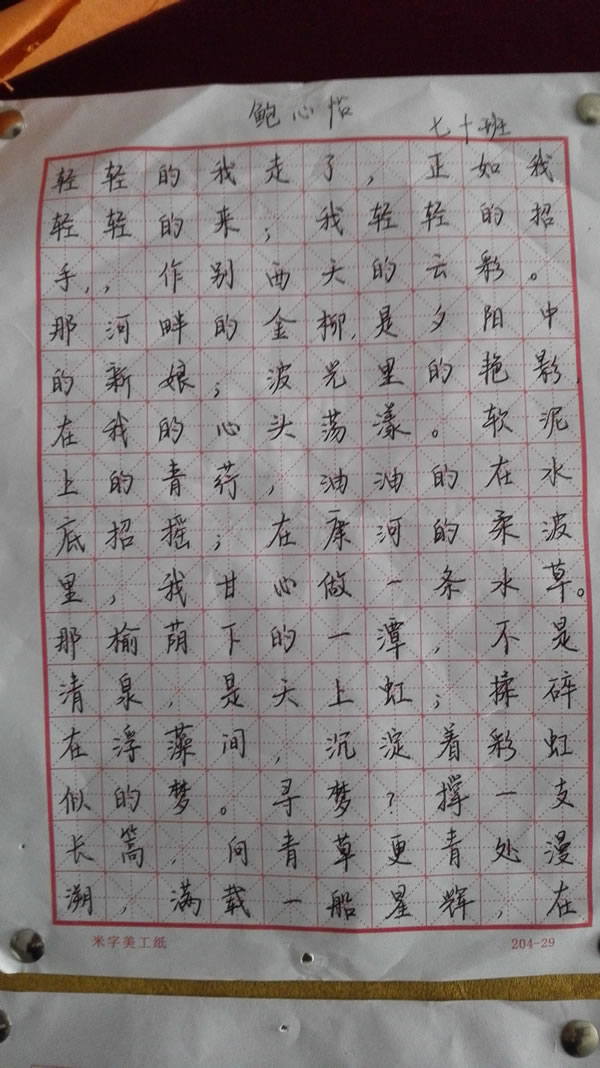 鲍心怡
七十班
轻轻的我走了，正如我
轻轻的来；我轻轻的招
手，，作别西天的云彩。
那河畔的金柳，是夕阳中
的新娘；波光里的艳影，
在我的心头荡漾。软泥
上的青荇，油油的在水
底招摇；在康河的柔波
里，我甘心做一条水草。
那榆荫下的一潭，不是
清泉，是天上虹；揉碎
在浮藻间，沉淀着彩虹
似的梦。寻梦？撑一支
长篙，向青草更青处漫
溯，满载一船星辉，在
米字美工纸
204-29